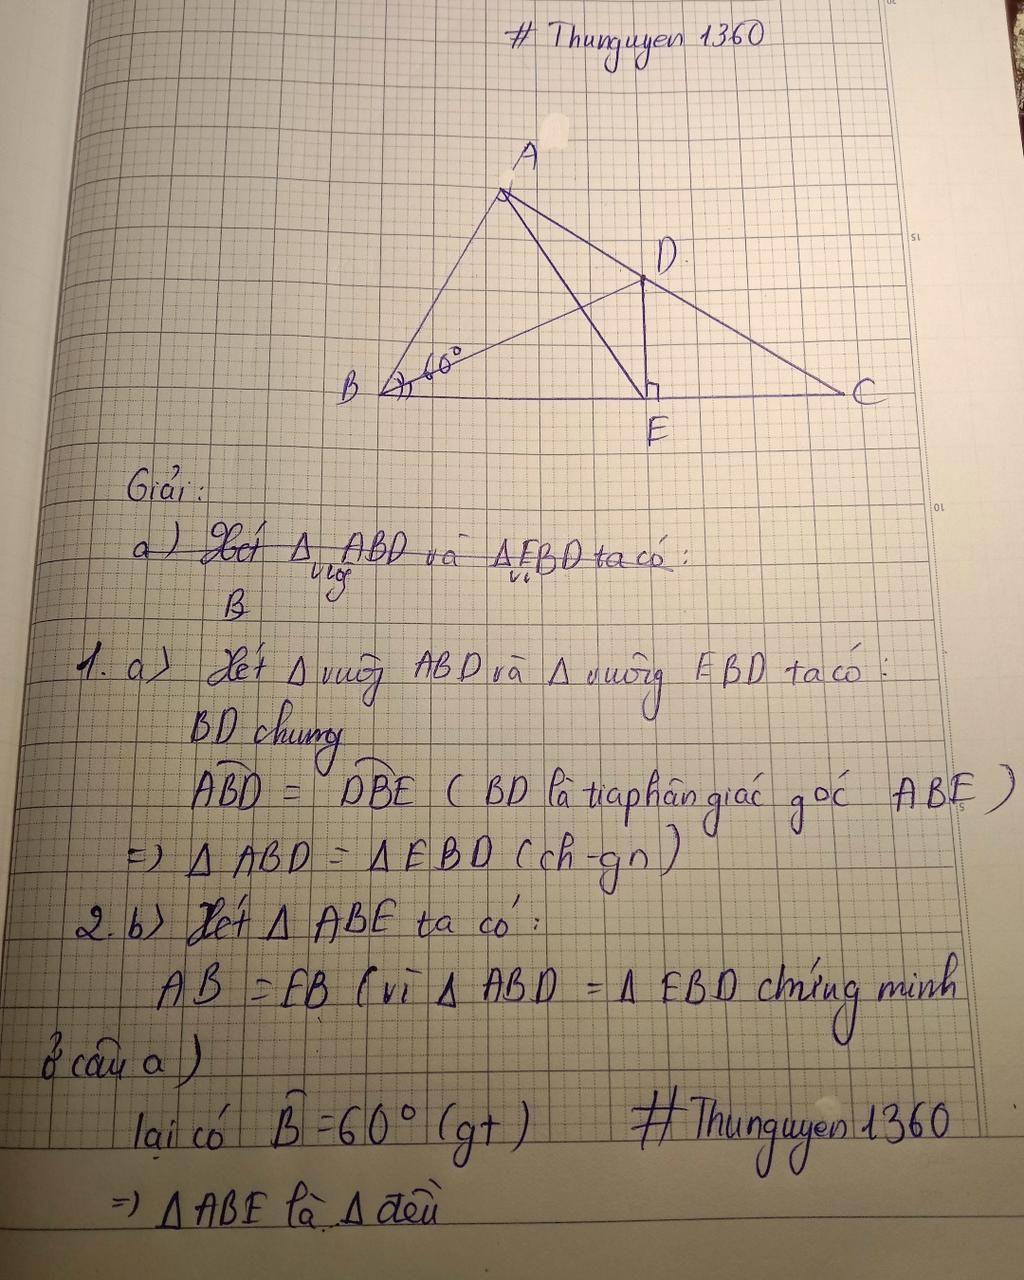 # Thunguyen 1360
A
D
60°
B
C
E
Giải:
a) Xét Δ ABD và ΔEBD ta có:
B
1. a) Xét Δ vuông ABD và Δ vuông EBD ta có:
BD chung
ABD = DBE ( BD là tia phân giác góc ABE )
=> Δ ABD = Δ EBD (ch-gn)
2. b) Xét Δ ABE ta có:
AB = EB (vì Δ ABD = Δ EBD chứng minh
ở câu a )
lại có B̂ = 60° (gt) # Thunguyen 1360
=> Δ ABE là Δ đều
15
10
5